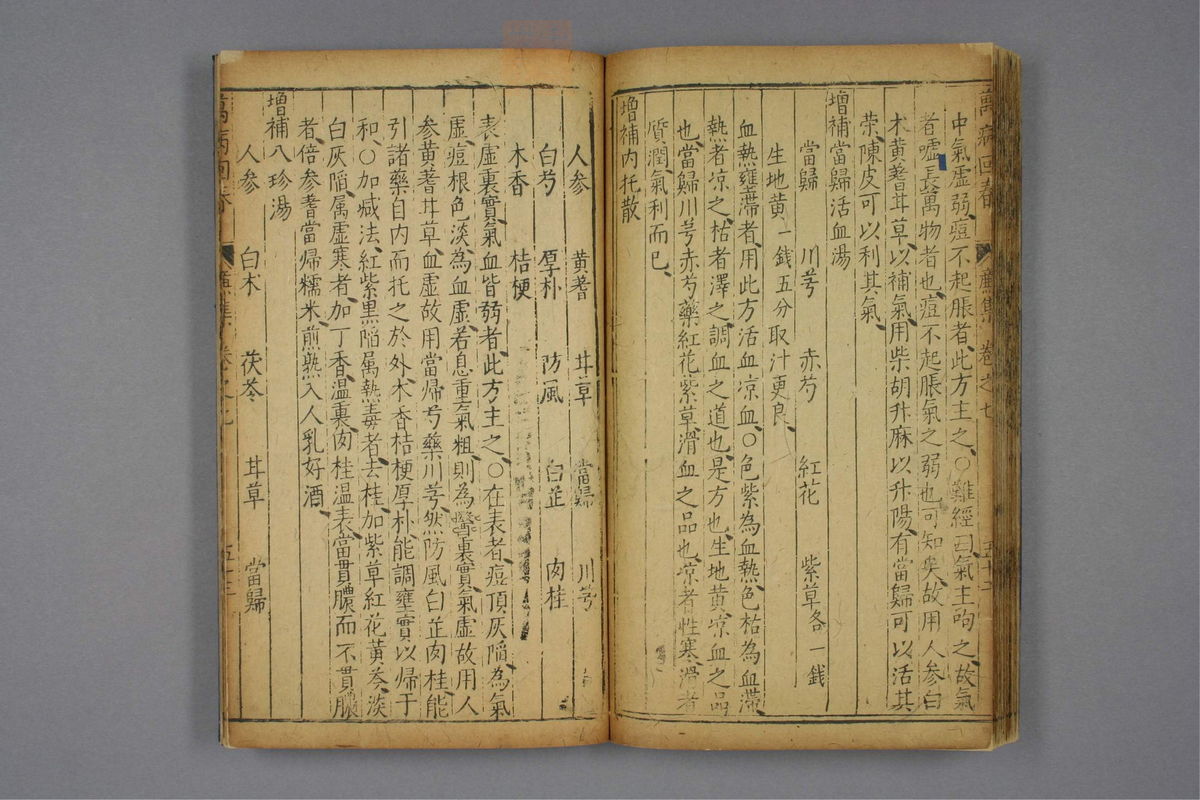 萬病回春 麻集 卷之七 五十二
中氣虛弱、痘不起脹者、此方主之、○難經曰氣主呴之、故氣
者噓長萬物者也、痘不起脹、氣之弱也可知矣、故用人參白
朮黃蓍甘草、以補氣、用柴胡升麻以升陽、有當歸可以活其
榮、陳皮可以利其氣、
增補當歸活血湯
當歸 川芎 赤芍 紅花 紫草各一錢
生地黃一錢五分取汁更良、
血熱壅滯者、用此方活血凉血、○色紫為血熱、色枯為血滯、
熱者凉之、枯者澤之、調血之道也、是方也、生地黃凉血之品
也、當歸川芎赤芍藥紅花紫草、滑血之品也、凉者性寒、滑者
質潤、氣利而已、
增補內托散
人參 黃蓍 甘草 當歸 川芎
白芍 厚朴 防風 白芷 肉桂
木香 桔梗
表虛裏實、氣血皆弱者、此方主之、○在表者、痘頂灰陷、為氣
虛、痘根色淡、為血虛、若息重氣粗、則為裏實、氣虛故用人
參黃蓍甘草、血虛故用當帰芍藥川芎、然防風白芷肉桂、能
引諸藥自內而托之於外、木香桔梗厚朴、能調壅實以帰于
和、○加减法、紅紫黑陷属熱毒者、去桂、加紫草紅花黃芩、淡
白灰陷、属虛寒者、加丁香、溫裏、肉桂溫表、當貫膿而不貫膿
者、倍參蓍當帰糯米、煎熟入人乳好酒、
增補八珍湯
人參 白朮 茯苓 甘草 當歸
萬病回春 麻集 卷之七 五十三